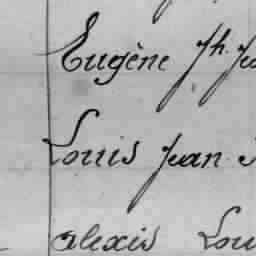 Eugène Jh.
Louis Jean
Alexis